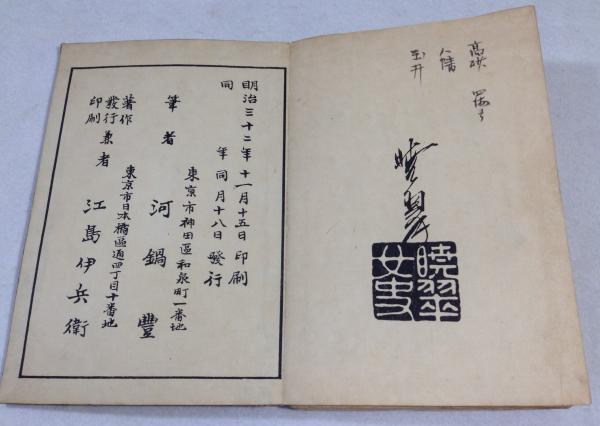 高砂
八幡
玉井
暁翠
暁翠
女史
明治三十二年十一月十五日印刷
同年同月十八日發行
東京市神田區和泉町一番地
筆者 河鍋豐
東京市日本橋區通四丁目十番地
著作
發行
印刷
兼者 江島伊兵衛